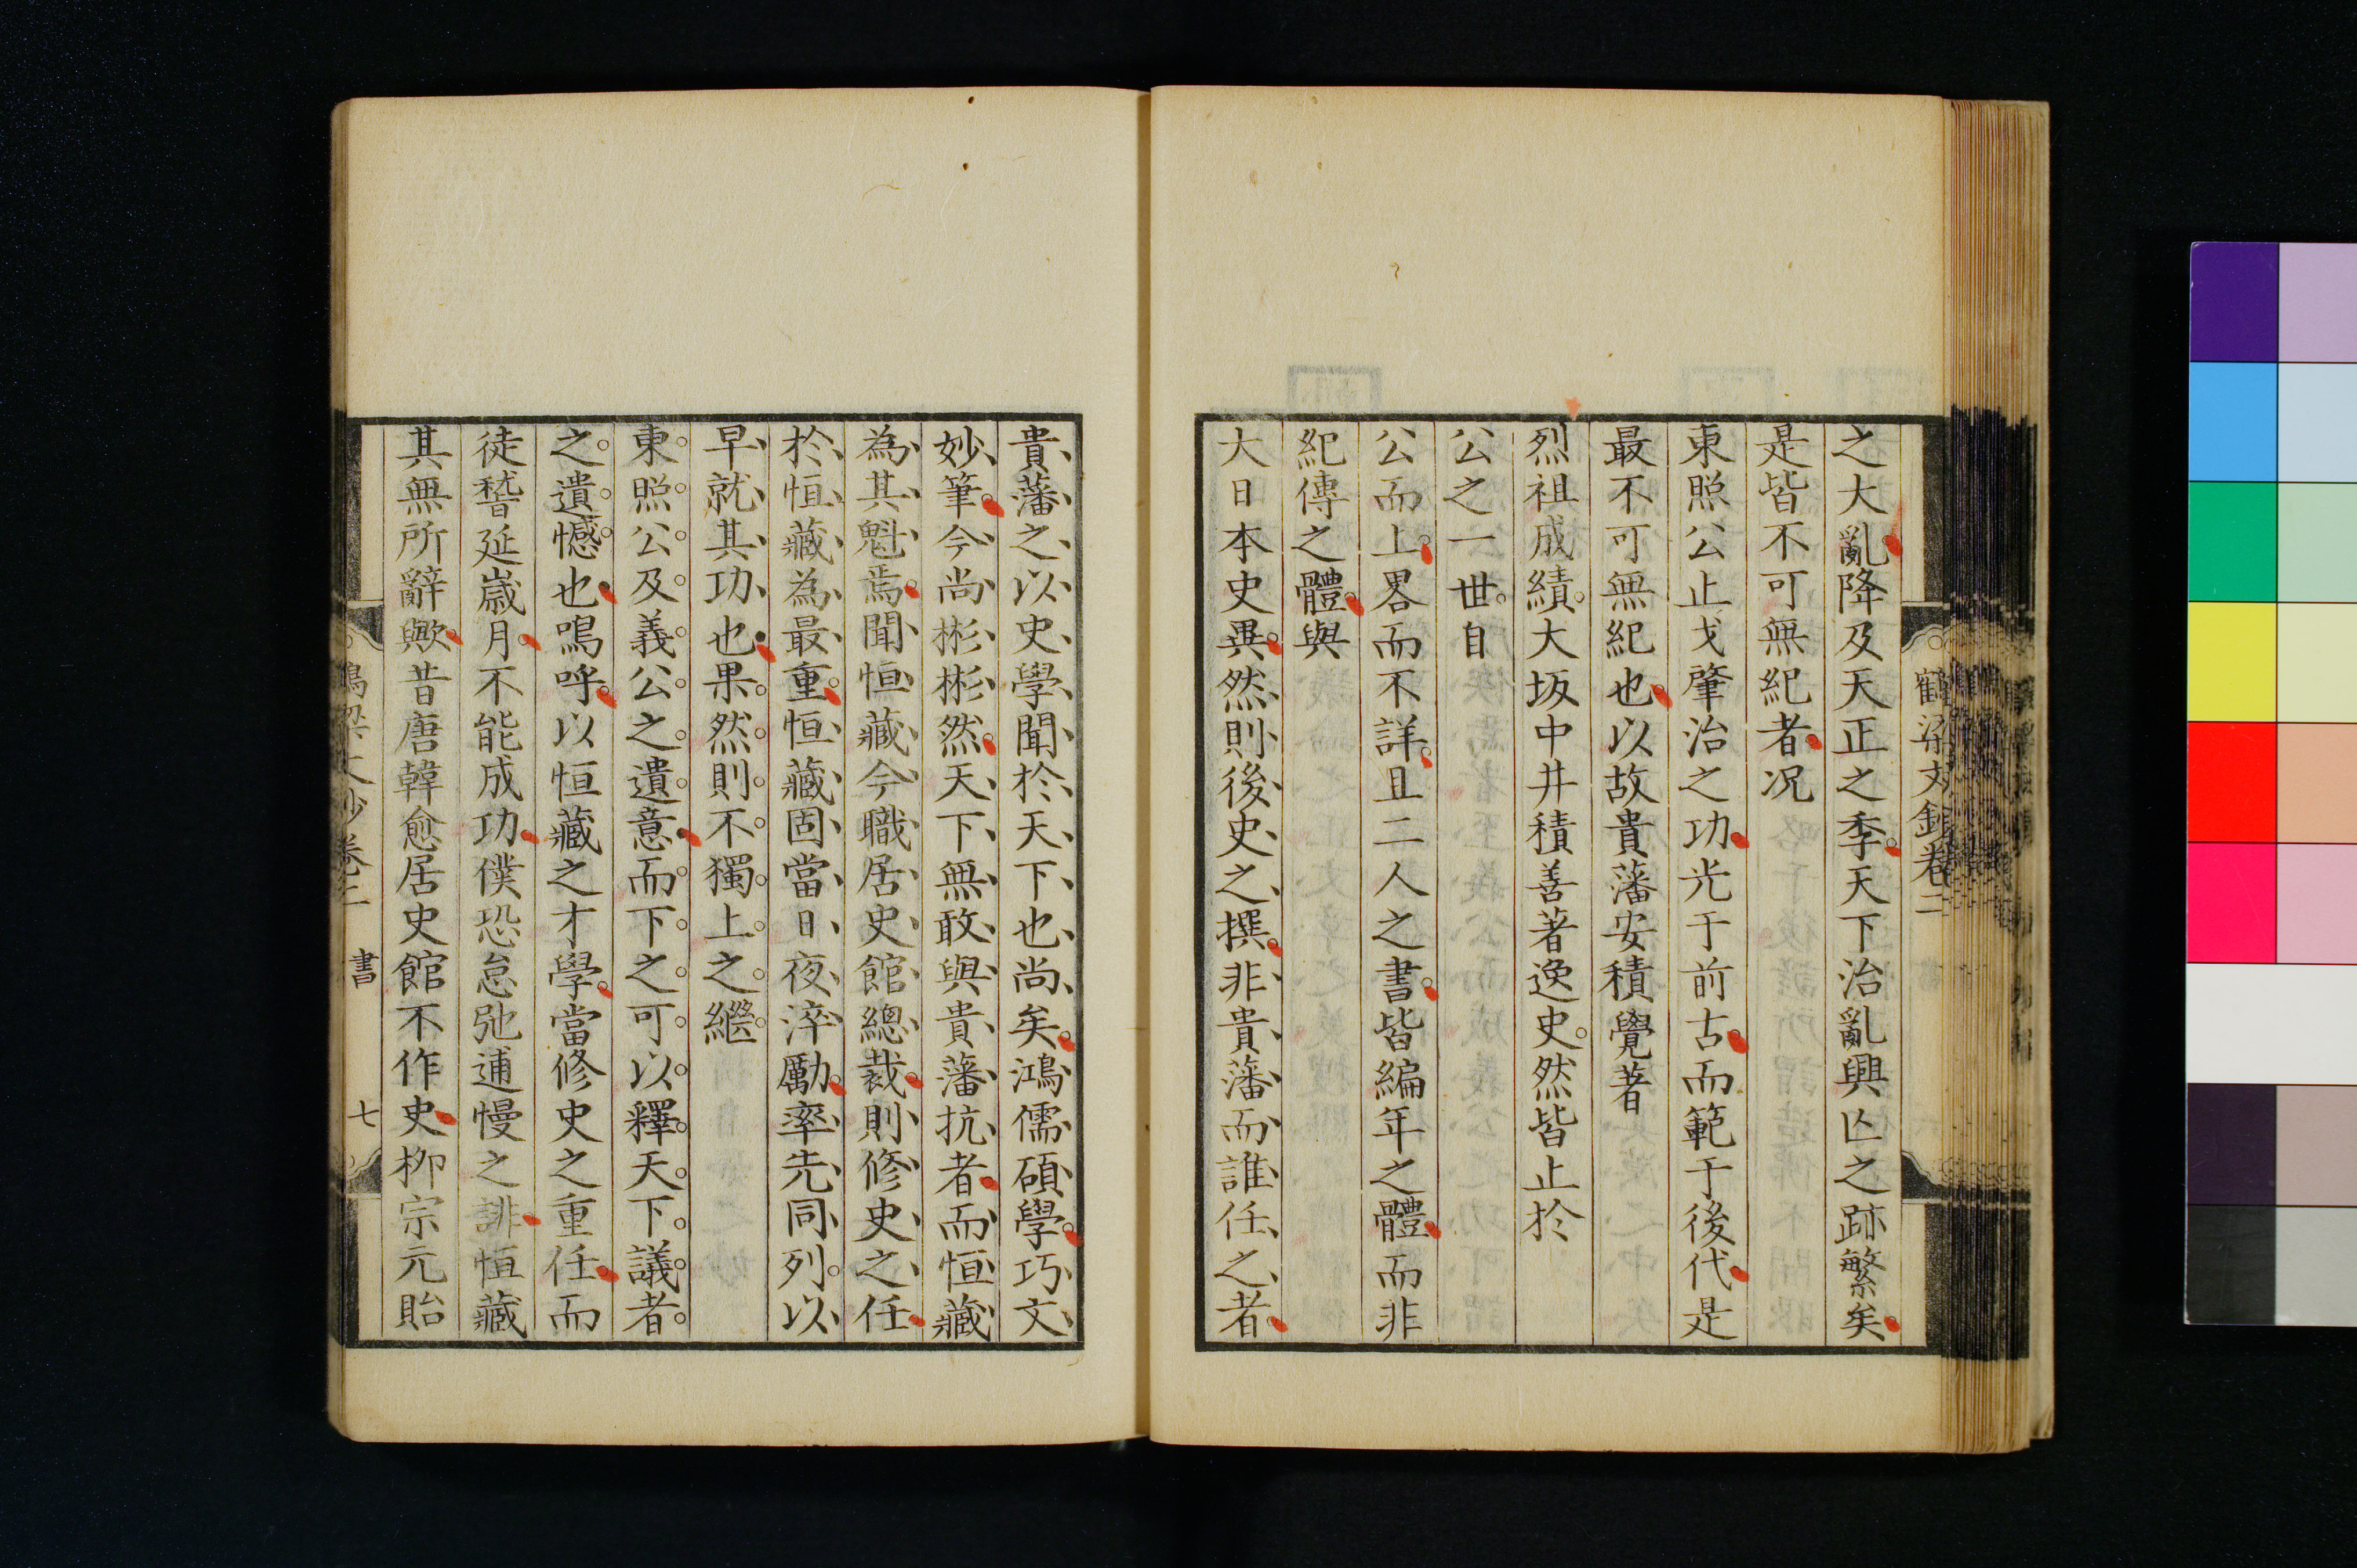 鶴梁文鈔卷二
之大亂降及天正之季天下治亂興亾之跡繁矣
是皆不可無紀者况
東照公止戈肇治之功光于前古而範于後代是
最不可無紀也以故貴藩安積覺著
烈祖成績大坂中井積善著逸史然皆止於
公之一世自
公而上畧而不詳且二人之書皆編年之體而非
紀傳之體與
大日本史異然則後史之撰非貴藩而誰任之者
貴藩之以史學聞於天下也尚矣鴻儒碩學巧文
妙筆今尚彬彬然天下無敢與貴藩抗者而恒藏
為其魁焉聞恒藏今職居史館總裁則修史之任
於恒藏為最重恒藏固當日夜淬勵率先同列以
早就其功也果然則不獨上之繼
東照公及義公之遺意而下之可以釋天下議者
之遺憾也嗚呼以恒藏之才學當修史之重任而
徒嵆延嵗月不能成功僕恐怠弛逋慢之誹恒藏
其無所辭歟昔唐韓愈居史館不作史柳宗元貽
鶴梁文鈔卷二 書 七